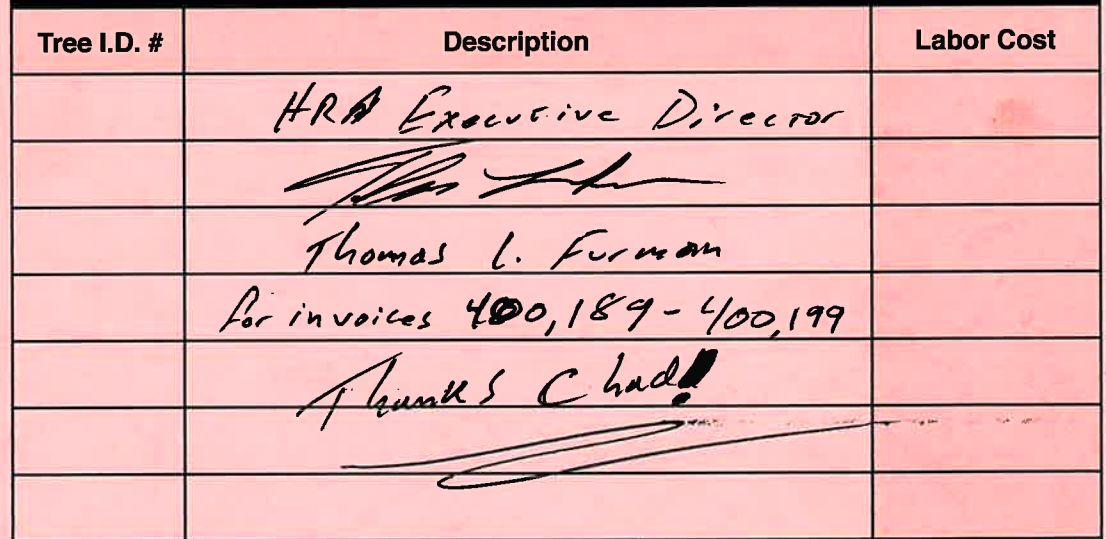 Tree I.D. # Description Labor Cost
HRA Executive Director
Thomas L. Furman
for invoices 400,189-400,199
Thanks Chad!